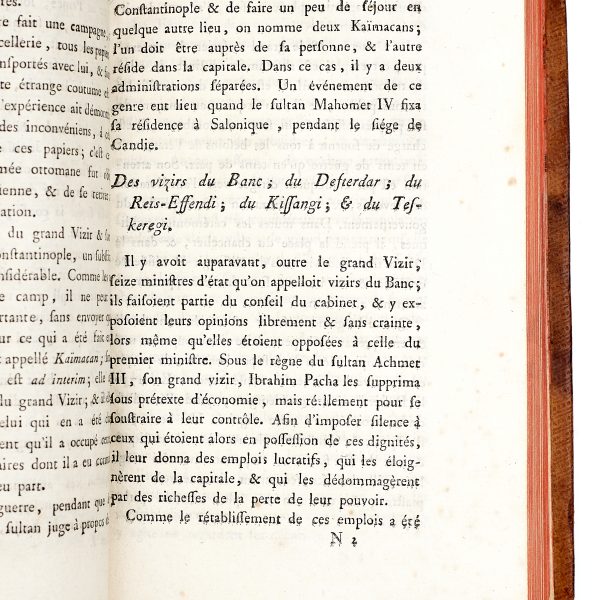 fait une campagne,
cellerie, tous les papiers
nsportés avec lui, &
te étrange coutume
'expérience ait démontré
des inconvéniens, à
ces papiers; c'est
mée ottomane fut
ienne, & de se retirer
ation.
du grand Vizir &
onstantinople, un
nsidérable. Comme
camp, il ne peut
rtante, sans envoyer
ur ce qui a été fait
t appellé Kaïmacan;
est ad interim; elle
du grand Vizir; &
elui qui en a été
ent qu'il a occupé
aires dont il a eu
eu part.
guerre, pendant que
sultan juge à propos
Constantinople & de faire un peu de séjour en
quelque autre lieu, on nomme deux Kaïmacans;
l'un doit être auprès de ſa perſonne, & l'autre
réſide dans la capitale. Dans ce cas, il y a deux
adminiſtrations ſéparées. Un événement de ce
genre eut lieu quand le ſultan Mahomet IV fixa
ſa réſidence à Salonique, pendant le ſiége de
Candie.
Des vizirs du Banc; du Defterdar; du
Reis-Effendi; du Kiſſangi; & du Teſ-
keregi.
Il y avoit auparavant, outre le grand Vizir,
ſeize miniſtres d'état qu'on appelloit vizirs du Banc;
ils faiſoient partie du conſeil du cabinet, & y ex-
poſoient leurs opinions librement & ſans crainte,
lors même qu'elles étoient oppoſées à celle du
premier miniſtre. Sous le règne du ſultan Achmet
III, ſon grand vizir, Ibrahim Pacha les ſupprima
ſous prétexte d'économie, mais réellement pour ſe
ſouſtraire à leur contrôle. Afin d'impoſer ſilence à
ceux qui étoient alors en poſſeſſion de ces dignités,
il leur donna des emplois lucratifs, qui les éloig-
nèrent de la capitale, & qui les dédommagèrent
par des richeſſes de la perte de leur pouvoir.
Comme le rétabliſſement de ces emplois a été
N 2